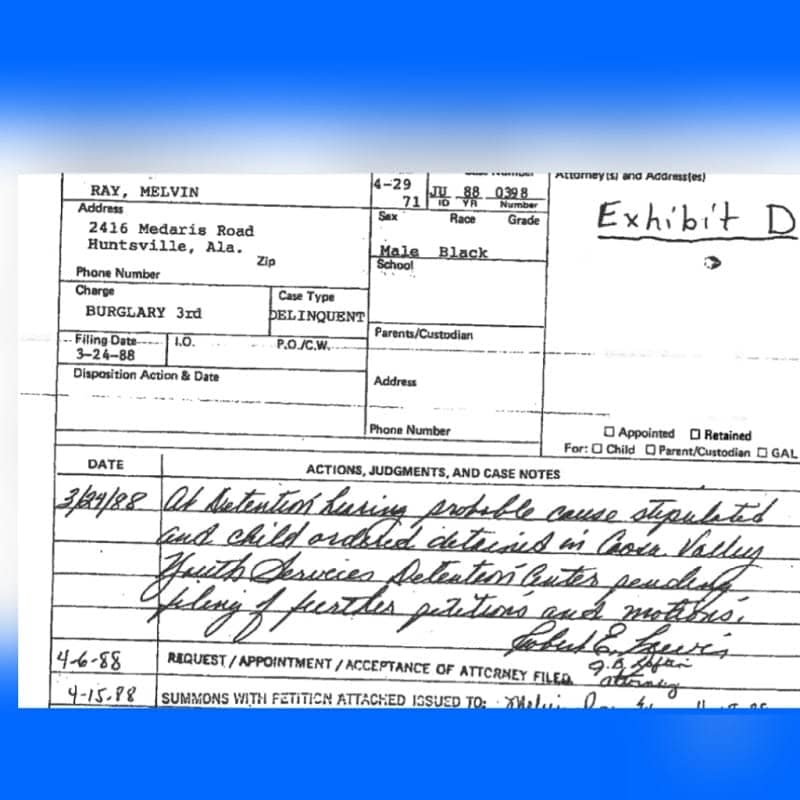 Attorney(s) and Address(es)
RAY, MELVIN
4-29
71
JU 88 0398
ID YR Number
Exhibit D
Address
Sex Race Grade
2416 Medaris Road
Huntsville, Ala.
Male Black
Zip
School
Phone Number
Charge
Case Type
BURGLARY 3rd
DELINQUENT
Parents/Custodian
Filing Date
I.O.
P.O./C.W.
3-24-88
Disposition Action & Date
Address
Phone Number
☐ Appointed ☐ Retained
For: ☐ Child ☐ Parent/Custodian ☐ GAL
DATE
ACTIONS, JUDGMENTS, AND CASE NOTES
3/24/88 At Detention hearing probable cause stipulated
and child ordered detained in Coosa Valley
Youth Services Detention Center pending
filing of further petitions and motions.
Robert E. Lewis
attorney
4-6-88 REQUEST/APPOINTMENT/ACCEPTANCE OF ATTORNEY FILED.
4-15-88 SUMMONS WITH PETITION ATTACHED ISSUED TO: Melvin